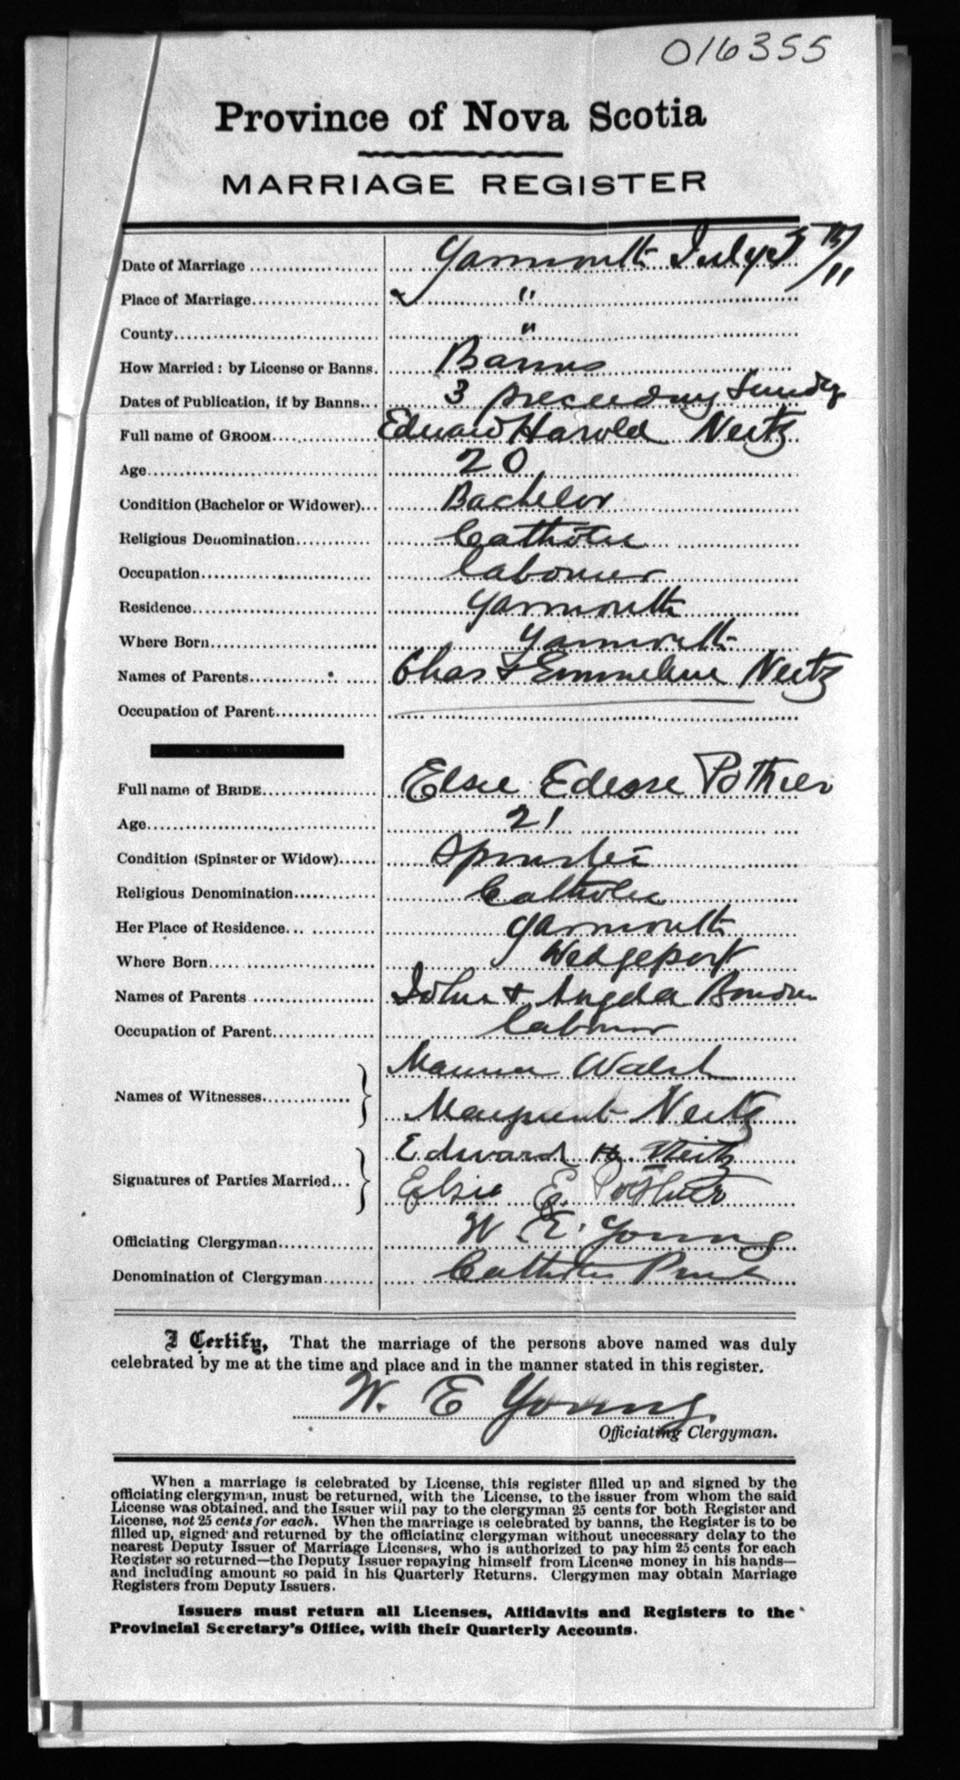 016355
Province of Nova Scotia
MARRIAGE REGISTER
Date of Marriage Yarmouth July 5th/11
Place of Marriage "
County "
How Married: by License or Banns. Banns
Dates of Publication, if by Banns 3 preceeding Sundy
Full name of GROOM Edward Harold Neitz
Age 20
Condition (Bachelor or Widower) Bachelor
Religious Denomination Catholic
Occupation labourer
Residence Yarmouth
Where Born Yarmouth
Names of Parents Chas & Emmeline Neitz
Occupation of Parent
Full name of BRIDE Elsie Edesse Pothier
Age 21
Condition (Spinster or Widow) Spinster
Religious Denomination Catholic
Her Place of Residence Yarmouth
Where Born Wedgeport
Names of Parents John & Angela
Occupation of Parent labourer
Names of Witnesses Walsh
Margaret Neitz
Signatures of Parties Married Edward H. Neitz
Elsie E. Pothier
Officiating Clergyman W. E. Young
Denomination of Clergyman Catholic Priest
I Certify, That the marriage of the persons above named was duly
celebrated by me at the time and place and in the manner stated in this register.
W. E Young
Officiating Clergyman.
When a marriage is celebrated by License, this register filled up and signed by the
officiating clergyman, must be returned, with the License, to the issuer from whom the said
License was obtained, and the Issuer will pay to the clergyman 25 cents for both Register and
License, not 25 cents for each. When the marriage is celebrated by banns, the Register is to be
filled up, signed and returned by the officiating clergyman without unecessary delay to the
nearest Deputy Issuer of Marriage Licenses, who is authorized to pay him 25 cents for each
Register so returned—the Deputy Issuer repaying himself from License money in his hands—
and including amount so paid in his Quarterly Returns. Clergymen may obtain Marriage
Registers from Deputy Issuers.
Issuers must return all Licenses, Affidavits and Registers to the
Provincial Secretary's Office, with their Quarterly Accounts.